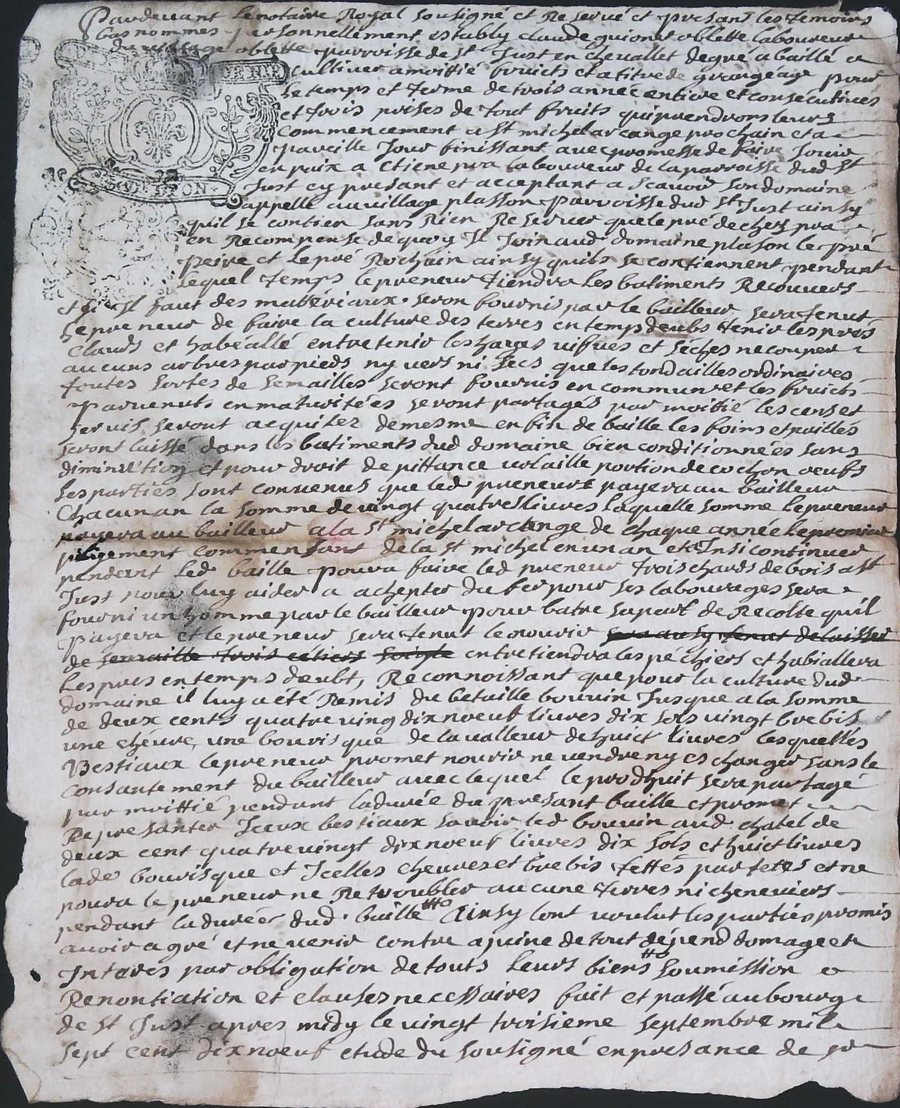 Pardevant le notaire Royal sousigné et Reservé et presant les temoins
bas nommes personnellement estably claude guionet oblette laboureur
du village oblette parroisse de St Just en chevallet degre a baillé a
cultiver a moittié fruicts et a titre de grangeage pour
le temps et terme de trois année entiere et consecutives
et trois prises de tout fruits qui prendrons leurs
commencement a St michel arcange prochain et a
pareille jour finissant avec promesse de faire jouir
en paix a Etiene pra laboureur de la parroisse dud St
Just cy presant et acceptant a scavoir son domaine
appellé au village plasson parroisse dud St Just ainsy
qu'il se contien sans Rien Reserver que le pré de chez pra
en Recompense de quoy Il joindra au domaine plason le pré
peire et le pré Rochain ainsy quils se contiennent pendant
lequel temps le preneur tiendra les batiments Recouvers
et si Il faut des matteriaux seron fournis par le bailleur sera tenut
le preneur de faire la culture des terres en temps deubs tenir les preés
clauds et habéallé entretenir les hayes vifves et séches ne couper
aucuns arbres par pieds ny vers ni secs que les tondailles ordinaires
toutes sortes de semailles seront fournis en commun et les fruicts
parvenuts en maturitées seront partagés par moitié les cens et
servis seront acquitez de mesme en fin de baille les foins et pailles
seront laissé dans les batiments dud domaine bien conditionnées sans
diminution et pour droit de pittance volaille portion de cochon oeufs
les parties sont convenus que led preneur payera au bailleur
chacun an la somme de vingt quatre livres laquelle somme le preneur
payera au bailleur a la St michel arcange de chaque année le premier
payement commensant de la St michel en un an et ainsi continuer
pendant led baille poura faire led preneur trois chards de bois a St
Just pour luy aider a achepter du fer pour ses labourages sera
fourni un homme par le bailleur pour batre sa part de Recolte qu'il
payera et le preneur sera tenut le nourir sera ausy tenut de laisser
de semaille trois cetiers soigle entretiendra les péchiers et habiallera
les pres en temps deubt, Reconnoissant que pour la culture dud
domaine il luy a été Remis du betaille bouvin jusque a la somme
de deux cents quatre ving dix noeuf livres dix sols vingt brebis
une chévre, une bourisque de la valleur de huict livres lesquelles
Bestiaux le preneur promet nourir ne vendre ny eschanger sans le
consantement du bailleur avec lequel le produit sera partagé
par moittié pendant la durée du presant baille et promet
Representer Iceux bestiaux savoir led bouvin aud chatel de
deux cent quatre vingt dix noeuf livres dix sols et huict livres
lade bourisque et Icelles chevres et brebis tettés par tetes et ne
poura le preneur ne Retroubler aucune terres ni cheneviers
pendant la durée dud baille Ainsy lont voulut les parties promis
avoir agré et ne venir contre a peine de tout dépend domage et
Interes par obligation de touts leurs biens soumission et
Renontiation et clauses necessaires fait et passé au bourg
de St Just apres midy le vingt troisieme septembre mil
sept cent dix noeuf etude du sousigné en presance de